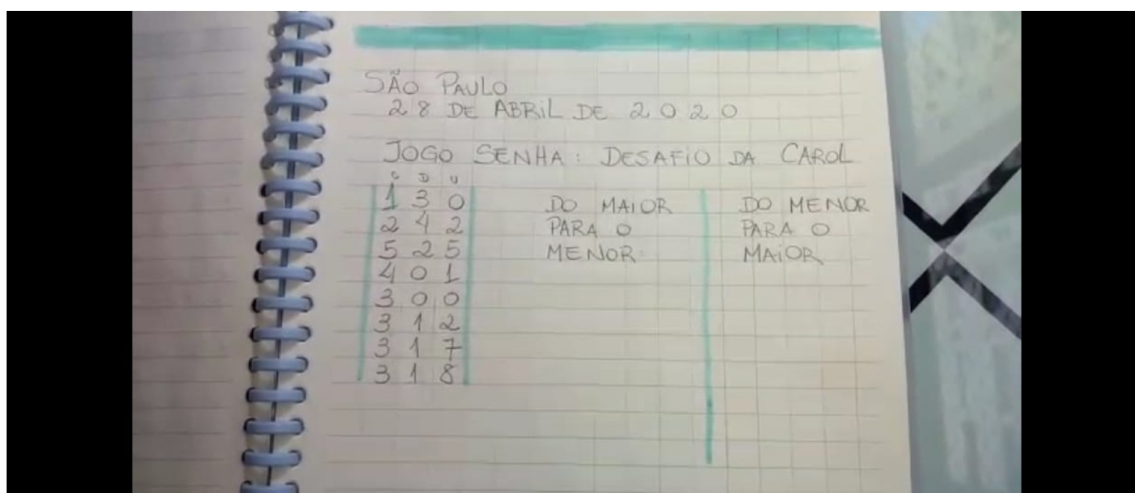 SÃO PAULO
28 DE ABRIL DE 2020
JOGO SENHA: DESAFIO DA CAROL
C D U
1 3 0
2 4 2
5 2 5
4 0 1
3 0 0
3 1 2
3 1 7
3 1 8
DO MAIOR
PARA O
MENOR
DO MENOR
PARA O
MAIOR